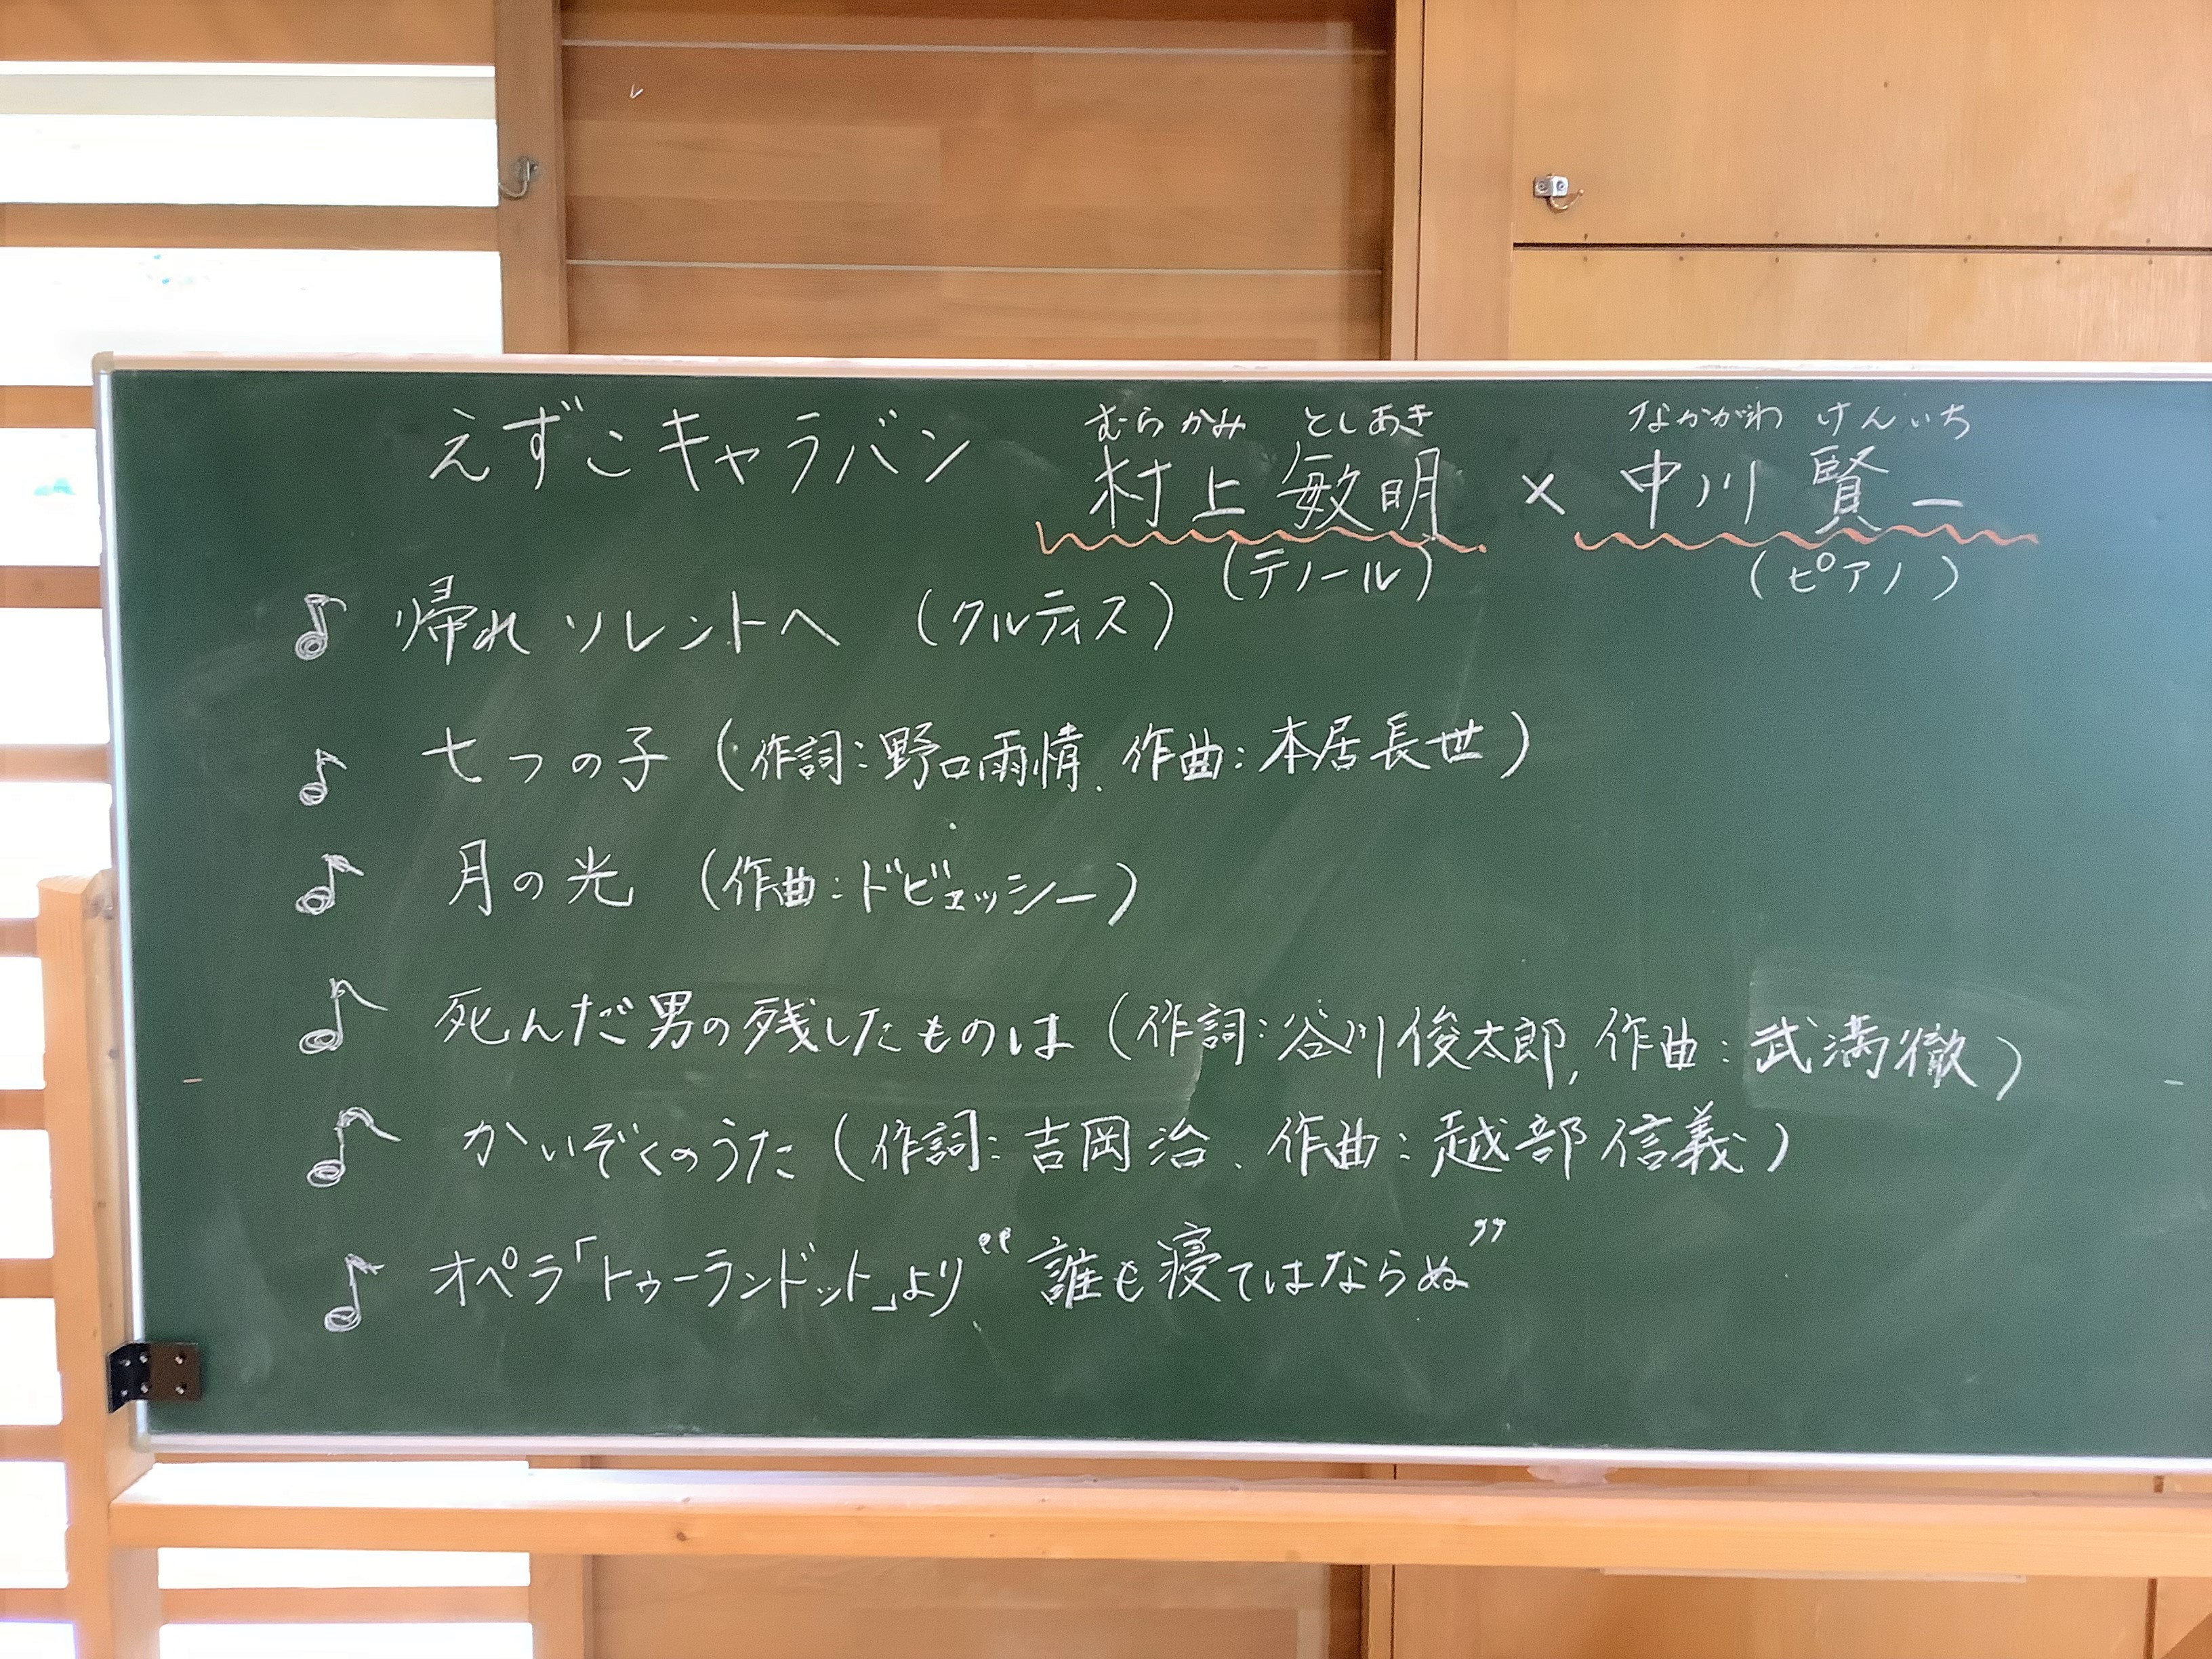 えずこキャラバン
むらかみ としあき なかがわ けんいち
村上 敏明 × 中川 賢一
(テノール) (ピアノ)
♪ 帰れ ソレントへ (クルティス)
♪ 七つの子 (作詞:野口雨情、作曲:本居長世)
♪ 月の光 (作曲:ドビュッシー)
♪ 死んだ男の残したものは (作詞:谷川俊太郎, 作曲:武満徹)
♪ かいぞくのうた (作詞:吉岡治、作曲:越部信義)
♪ オペラ「トゥーランドット」より“誰も寝てはならぬ”